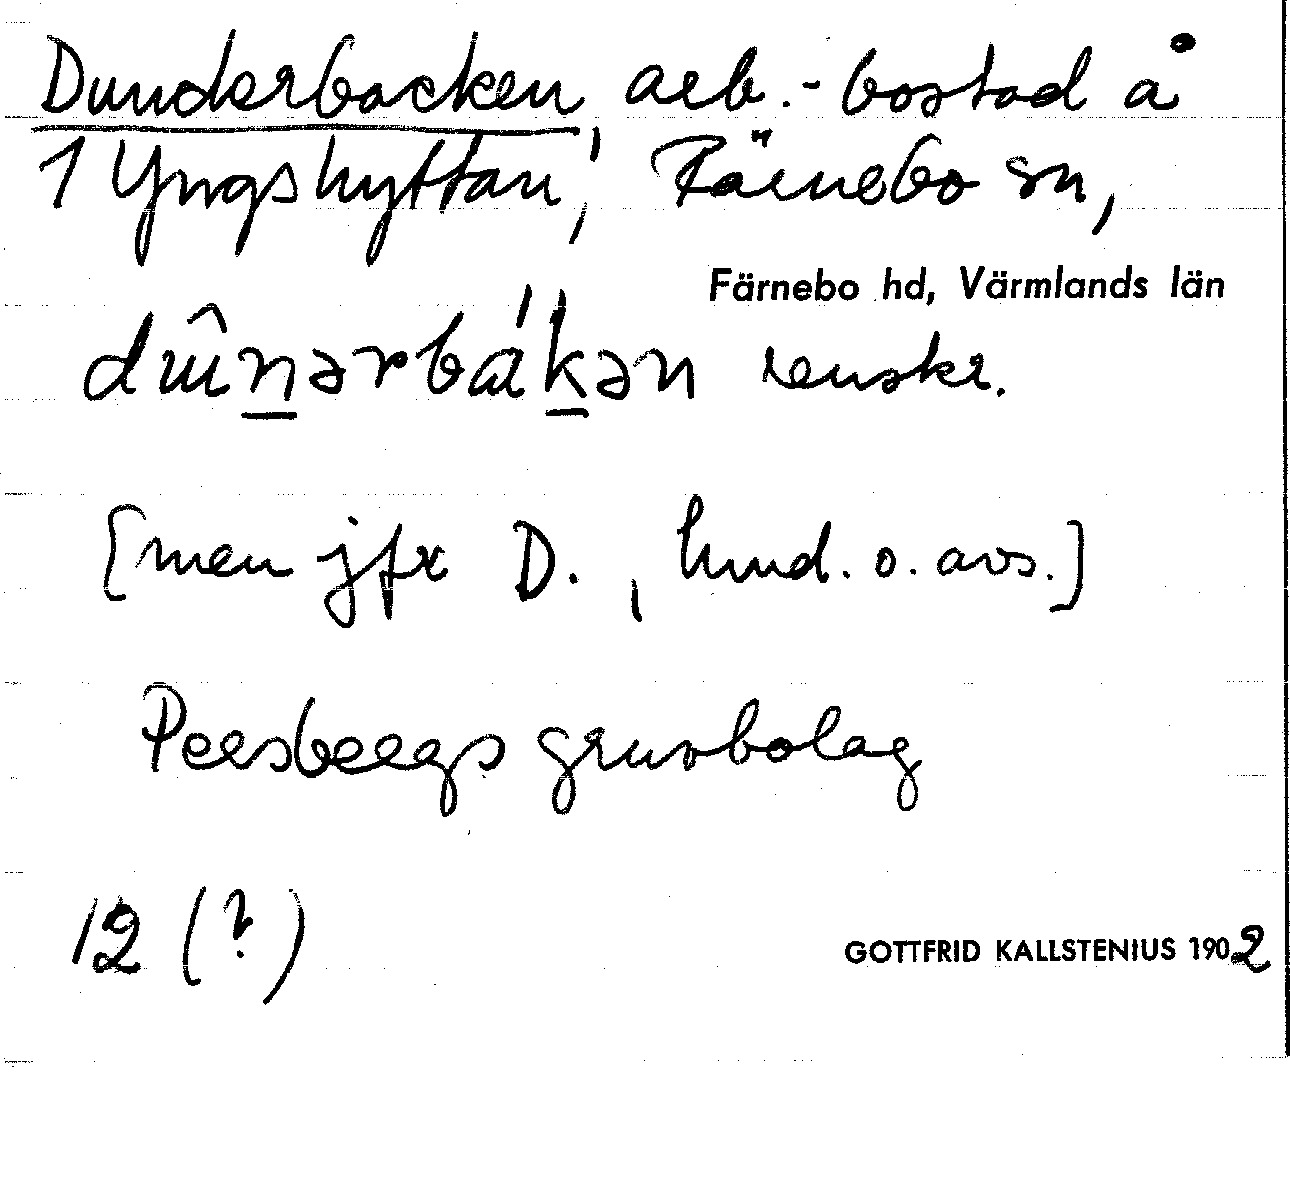 Dunderbacken, arb.-bostad å
1 Yngshyttan, Färnebo sn,
Färnebo hd, Värmlands län
dɯ̂n̲ərbák̲ən renskr.
[men jfr D., hmd. o. avs.]
Persbergs gruvbolag
12 (?)
GOTTFRID KALLSTENIUS 1902